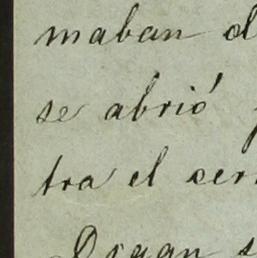 maban d
se abrió
tra el cer